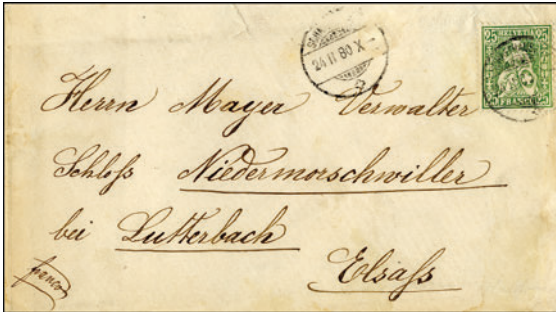 24 II 80 X
HELVETIA
25 25
FRANCO
Herrn Mayer Verwalter
Schloß Niedermorschwiller
bei Lutterbach
Elsaß
franco